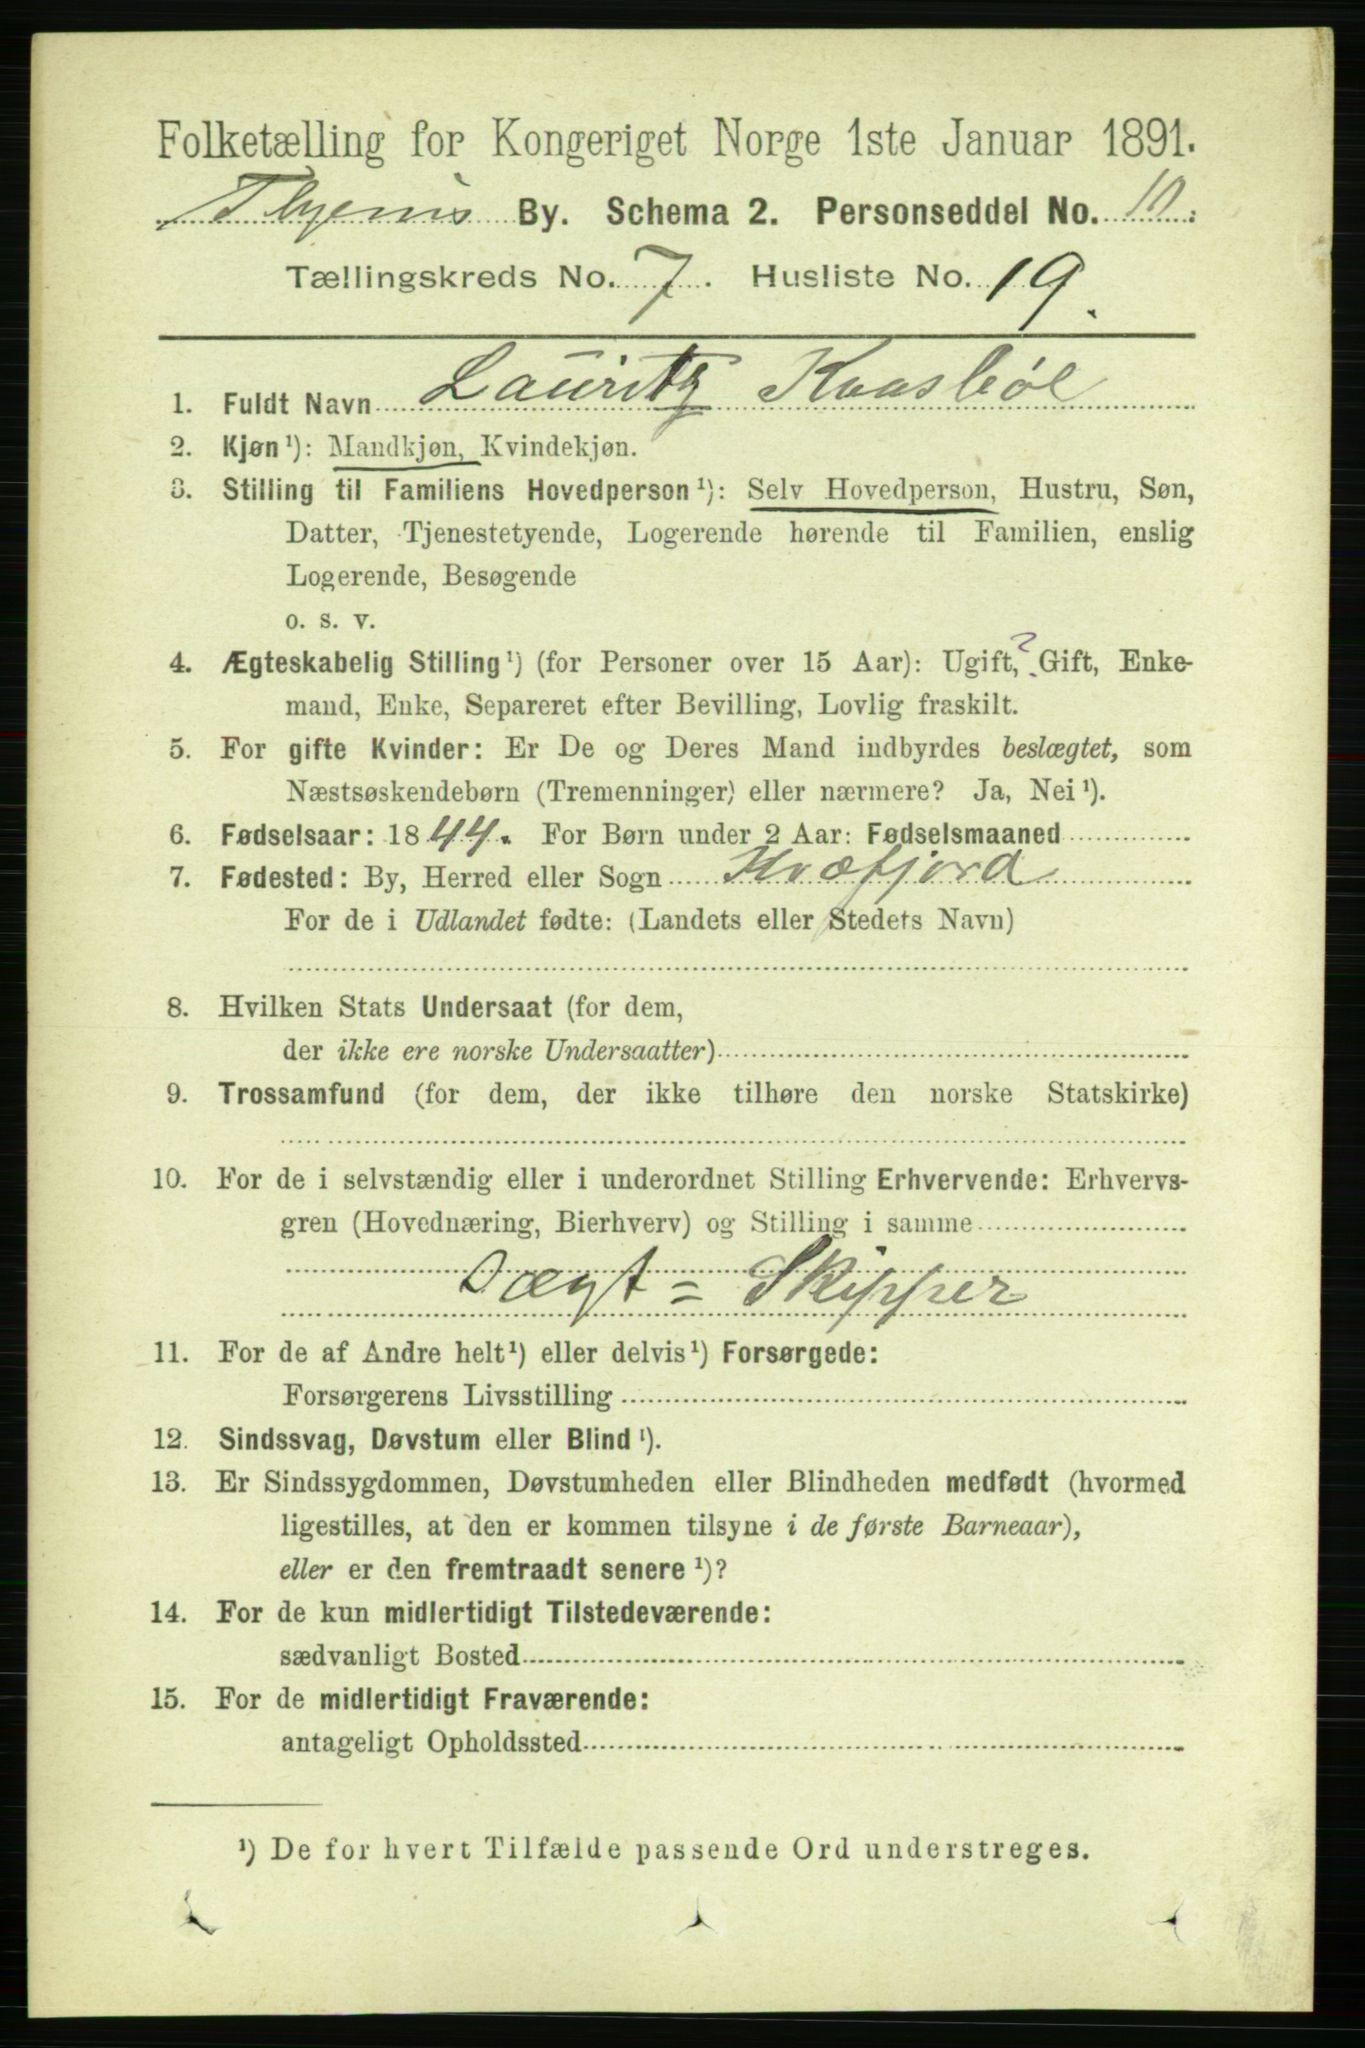 Folketælling for Kongeriget Norge 1ste Januar 1891.
By. Schema 2. Personseddel No. 10.
Tællingskreds No. 7. Husliste No. 19.
1. Fuldt Navn Lauritz Kaasbøl
2. Kjøn¹): Mandkjøn, Kvindekjøn.
3. Stilling til Familiens Hovedperson¹): Selv Hovedperson, Hustru, Søn,
Datter, Tjenestetyende, Logerende hørende til Familien, enslig
Logerende, Besøgende
o. s. v.
4. Ægteskabelig Stilling¹) (for Personer over 15 Aar): Ugift,? Gift, Enke-
mand, Enke, Separeret efter Bevilling, Lovlig fraskilt.
5. For gifte Kvinder: Er De og Deres Mand indbyrdes beslægtet, som
Næstsøskendebørn (Tremenninger) eller nærmere? Ja, Nei¹).
6. Fødselsaar: 1844. For Børn under 2 Aar: Fødselsmaaned
7. Fødested: By, Herred eller Sogn Kvæfjord
For de i Udlandet fødte: (Landets eller Stedets Navn)
8. Hvilken Stats Undersaat (for dem,
der ikke ere norske Undersaatter)
9. Trossamfund (for dem, der ikke tilhøre den norske Statskirke)
10. For de i selvstændig eller i underordnet Stilling Erhvervende: Erhvervs-
gren (Hovednæring, Bierhverv) og Stilling i samme
Jægt = Skipper
11. For de af Andre helt¹) eller delvis¹) Forsørgede:
Forsørgerens Livsstilling
12. Sindssvag, Døvstum eller Blind¹).
13. Er Sindssygdommen, Døvstumheden eller Blindheden medfødt (hvormed
ligestilles, at den er kommen tilsyne i de første Barneaar),
eller er den fremtraadt senere¹)?
14. For de kun midlertidigt Tilstedeværende:
sædvanligt Bosted
15. For de midlertidigt Fraværende:
antageligt Opholdssted
¹) De for hvert Tilfælde passende Ord understreges.